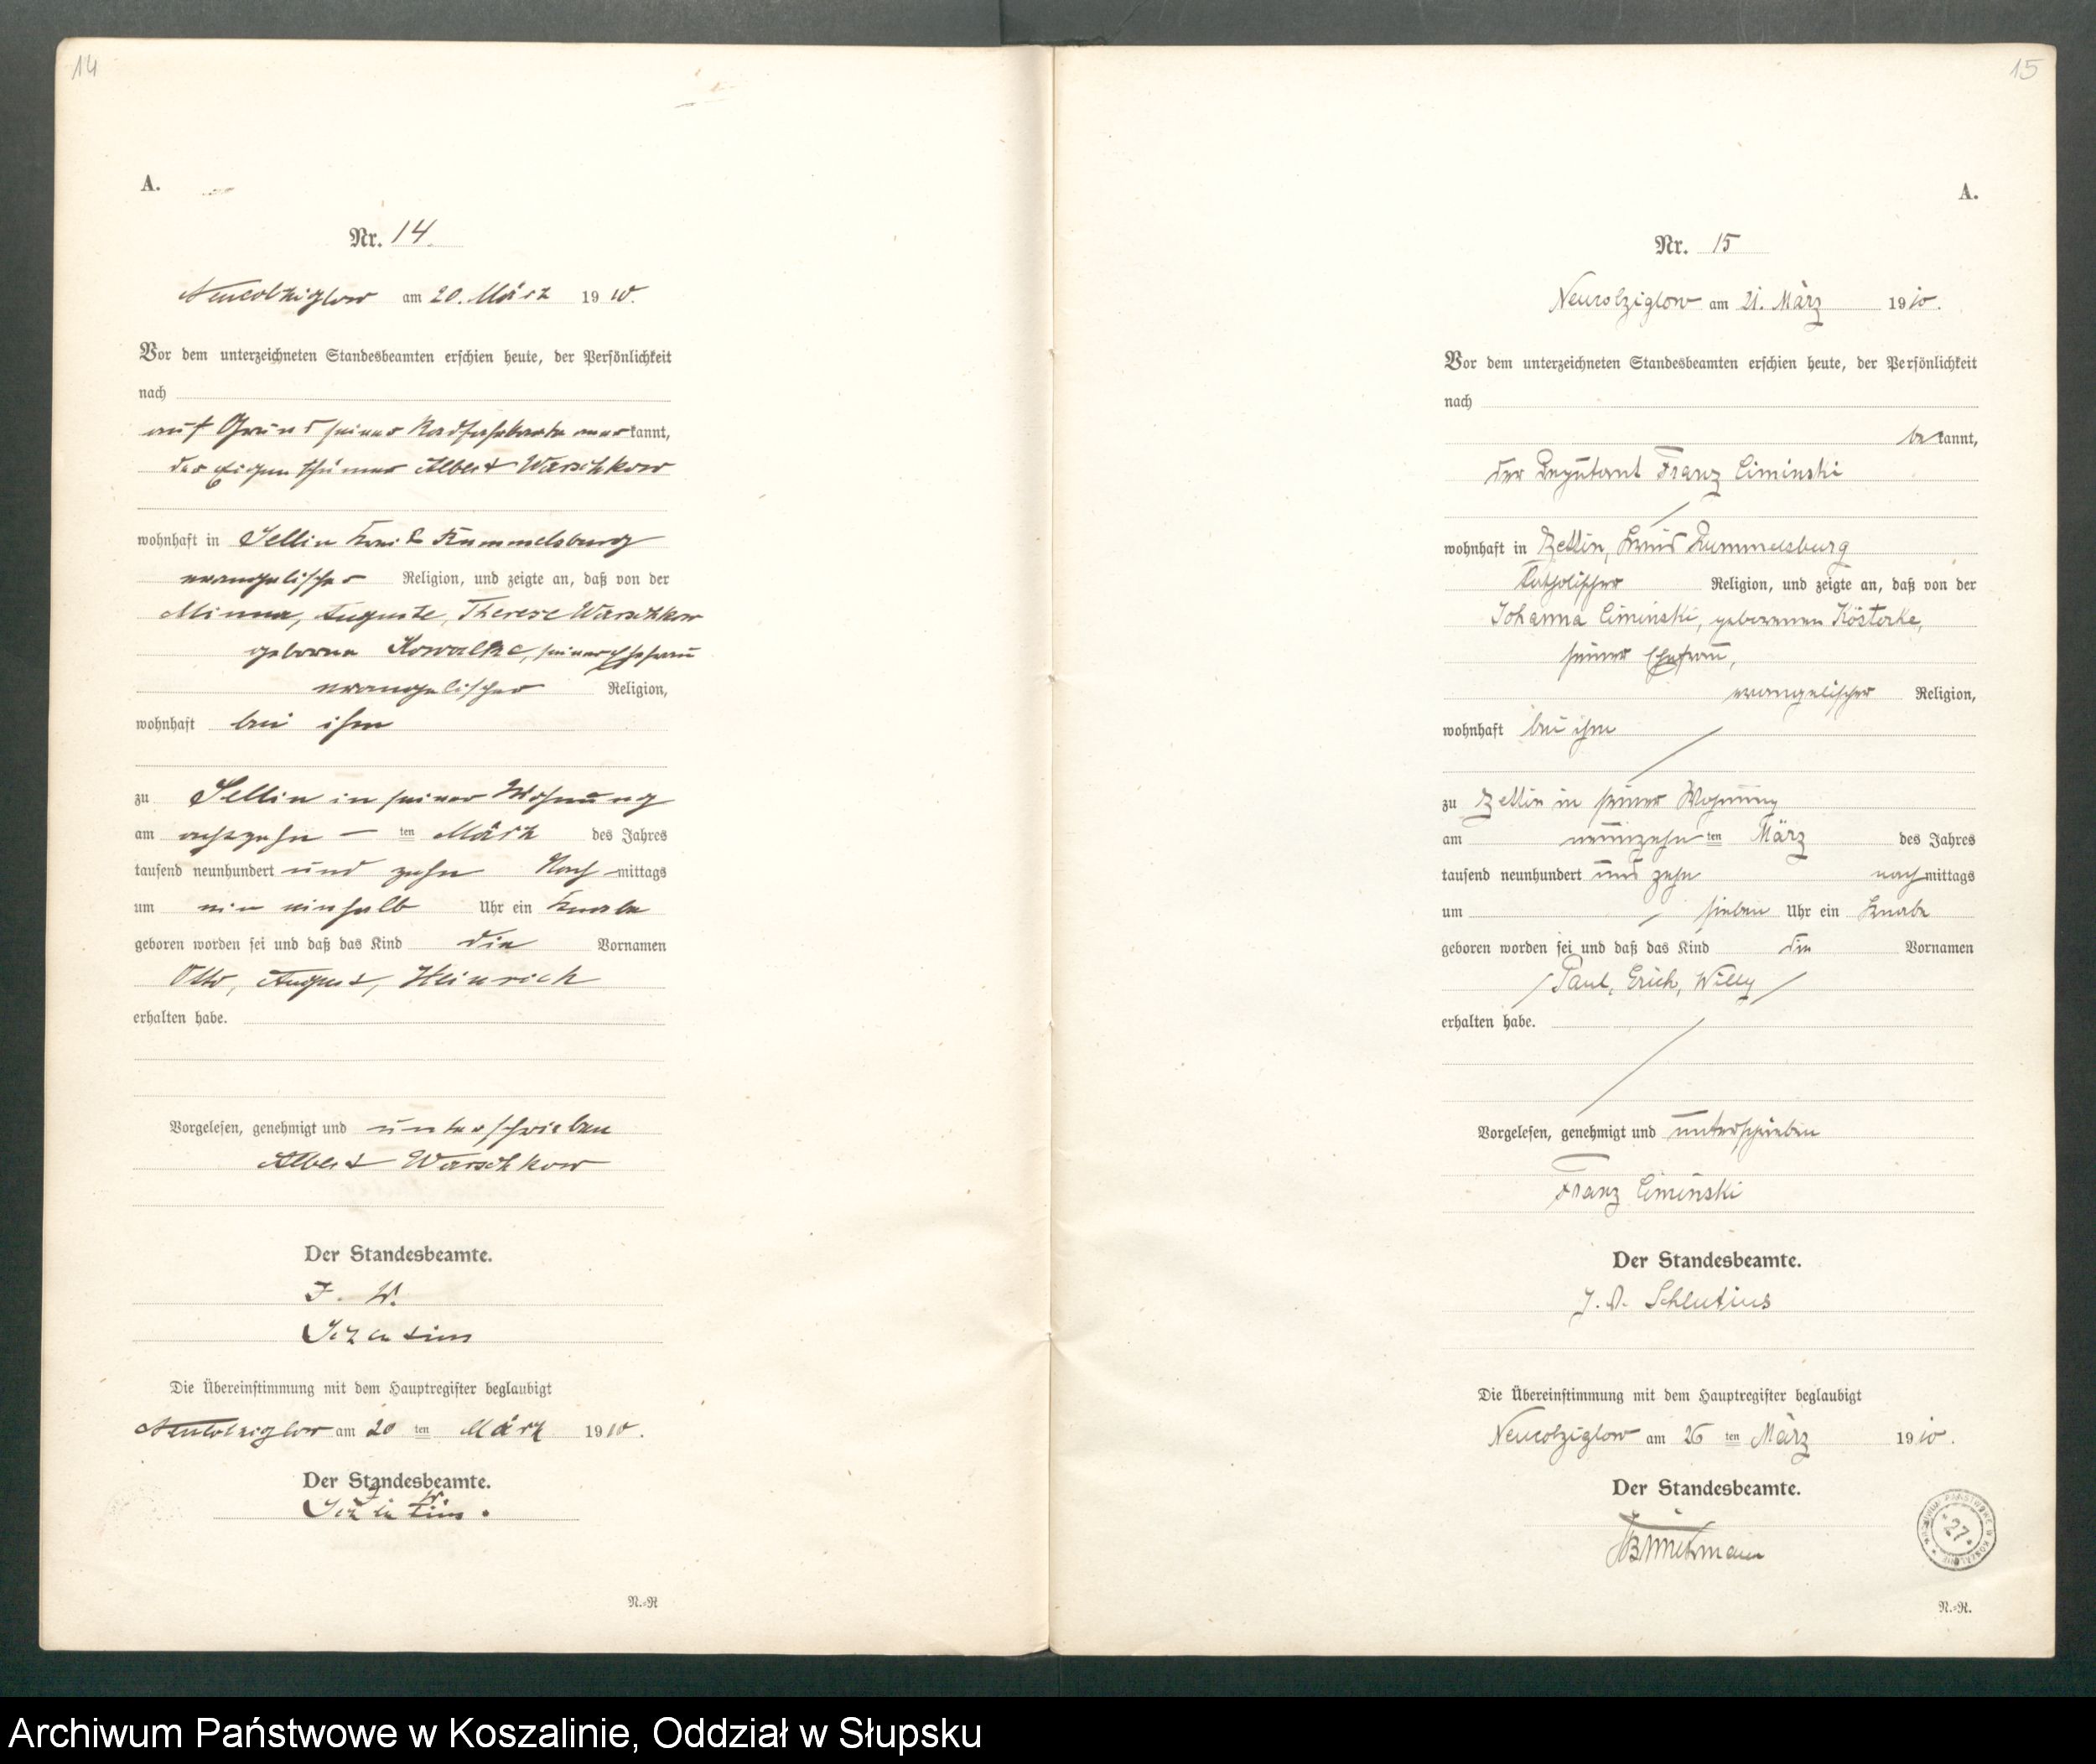 14
A.
Nr. 14.
Neucolziglow am 20. März 1910.
Vor dem unterzeichneten Standesbeamten erschien heute, der Persönlichkeit
nach
auf Grund seiner Radfahrkarte anerkannt,
der Eigenthümer Albert Warschkow
wohnhaft in Sellin Kreis Rummelsburg
evangelischer Religion, und zeigte an, daß von der
Minna, Auguste, Therese Warschkow
geborne Kowalke, seiner Ehefrau
evangelischer Religion,
wohnhaft bei ihm
zu Sellin in seiner Wohnung
am achtzehn ten März des Jahres
tausend neunhundert und zehn Nachmittags
um ein einhalb Uhr ein Knabe
geboren worden sei und daß das Kind die Vornamen
Otto, August, Heinrich
erhalten habe.
Vorgelesen, genehmigt und unterschrieben
Albert Warschkow
Der Standesbeamte.
J. V.
Schlutius
Die Übereinstimmung mit dem Hauptregister beglaubigt
Neucolziglow am 20 ten März 1910.
Der Standesbeamte.
J. V.
Schlutius.
N.-R
15
A.
Nr. 15
Neucolziglow am 21. März 1910.
Vor dem unterzeichneten Standesbeamten erschien heute, der Persönlichkeit
nach
bekannt,
der Deputant Franz Ciminski
wohnhaft in Zettin, Kreis Rummelsburg
katholischer Religion, und zeigte an, daß von der
Johanna Ciminski, geborenen Kösterke,
seiner Ehefrau,
evangelischer Religion,
wohnhaft bei ihm
zu Zettin in seiner Wohnung
am neunzehn ten März des Jahres
tausend neunhundert und zehn nachmittags
um sieben Uhr ein Knabe
geboren worden sei und daß das Kind die Vornamen
Paul, Erich, Willy
erhalten habe.
Vorgelesen, genehmigt und unterschrieben
Franz Ciminski
Der Standesbeamte.
J. V. Schlutius
Die Übereinstimmung mit dem Hauptregister beglaubigt
Neucolziglow am 26 ten März 1910.
Der Standesbeamte.
27
N.-R.
Archiwum Państwowe w Koszalinie, Oddział w Słupsku